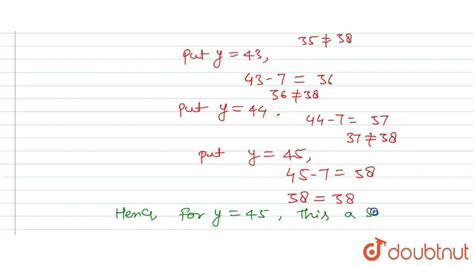 35 ≠ 38
put y = 43,
43 - 7 = 36
36 ≠ 38
put y = 44.
44 - 7 = 37
37 ≠ 38
put y = 45,
45 - 7 = 38
38 = 38
Hence, for y = 45, this a
doubtnut